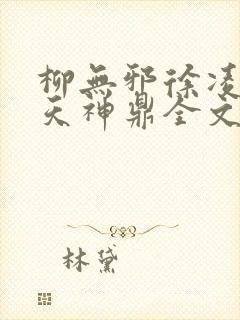 柳無邪徐凌
天神鼎全文
林黛